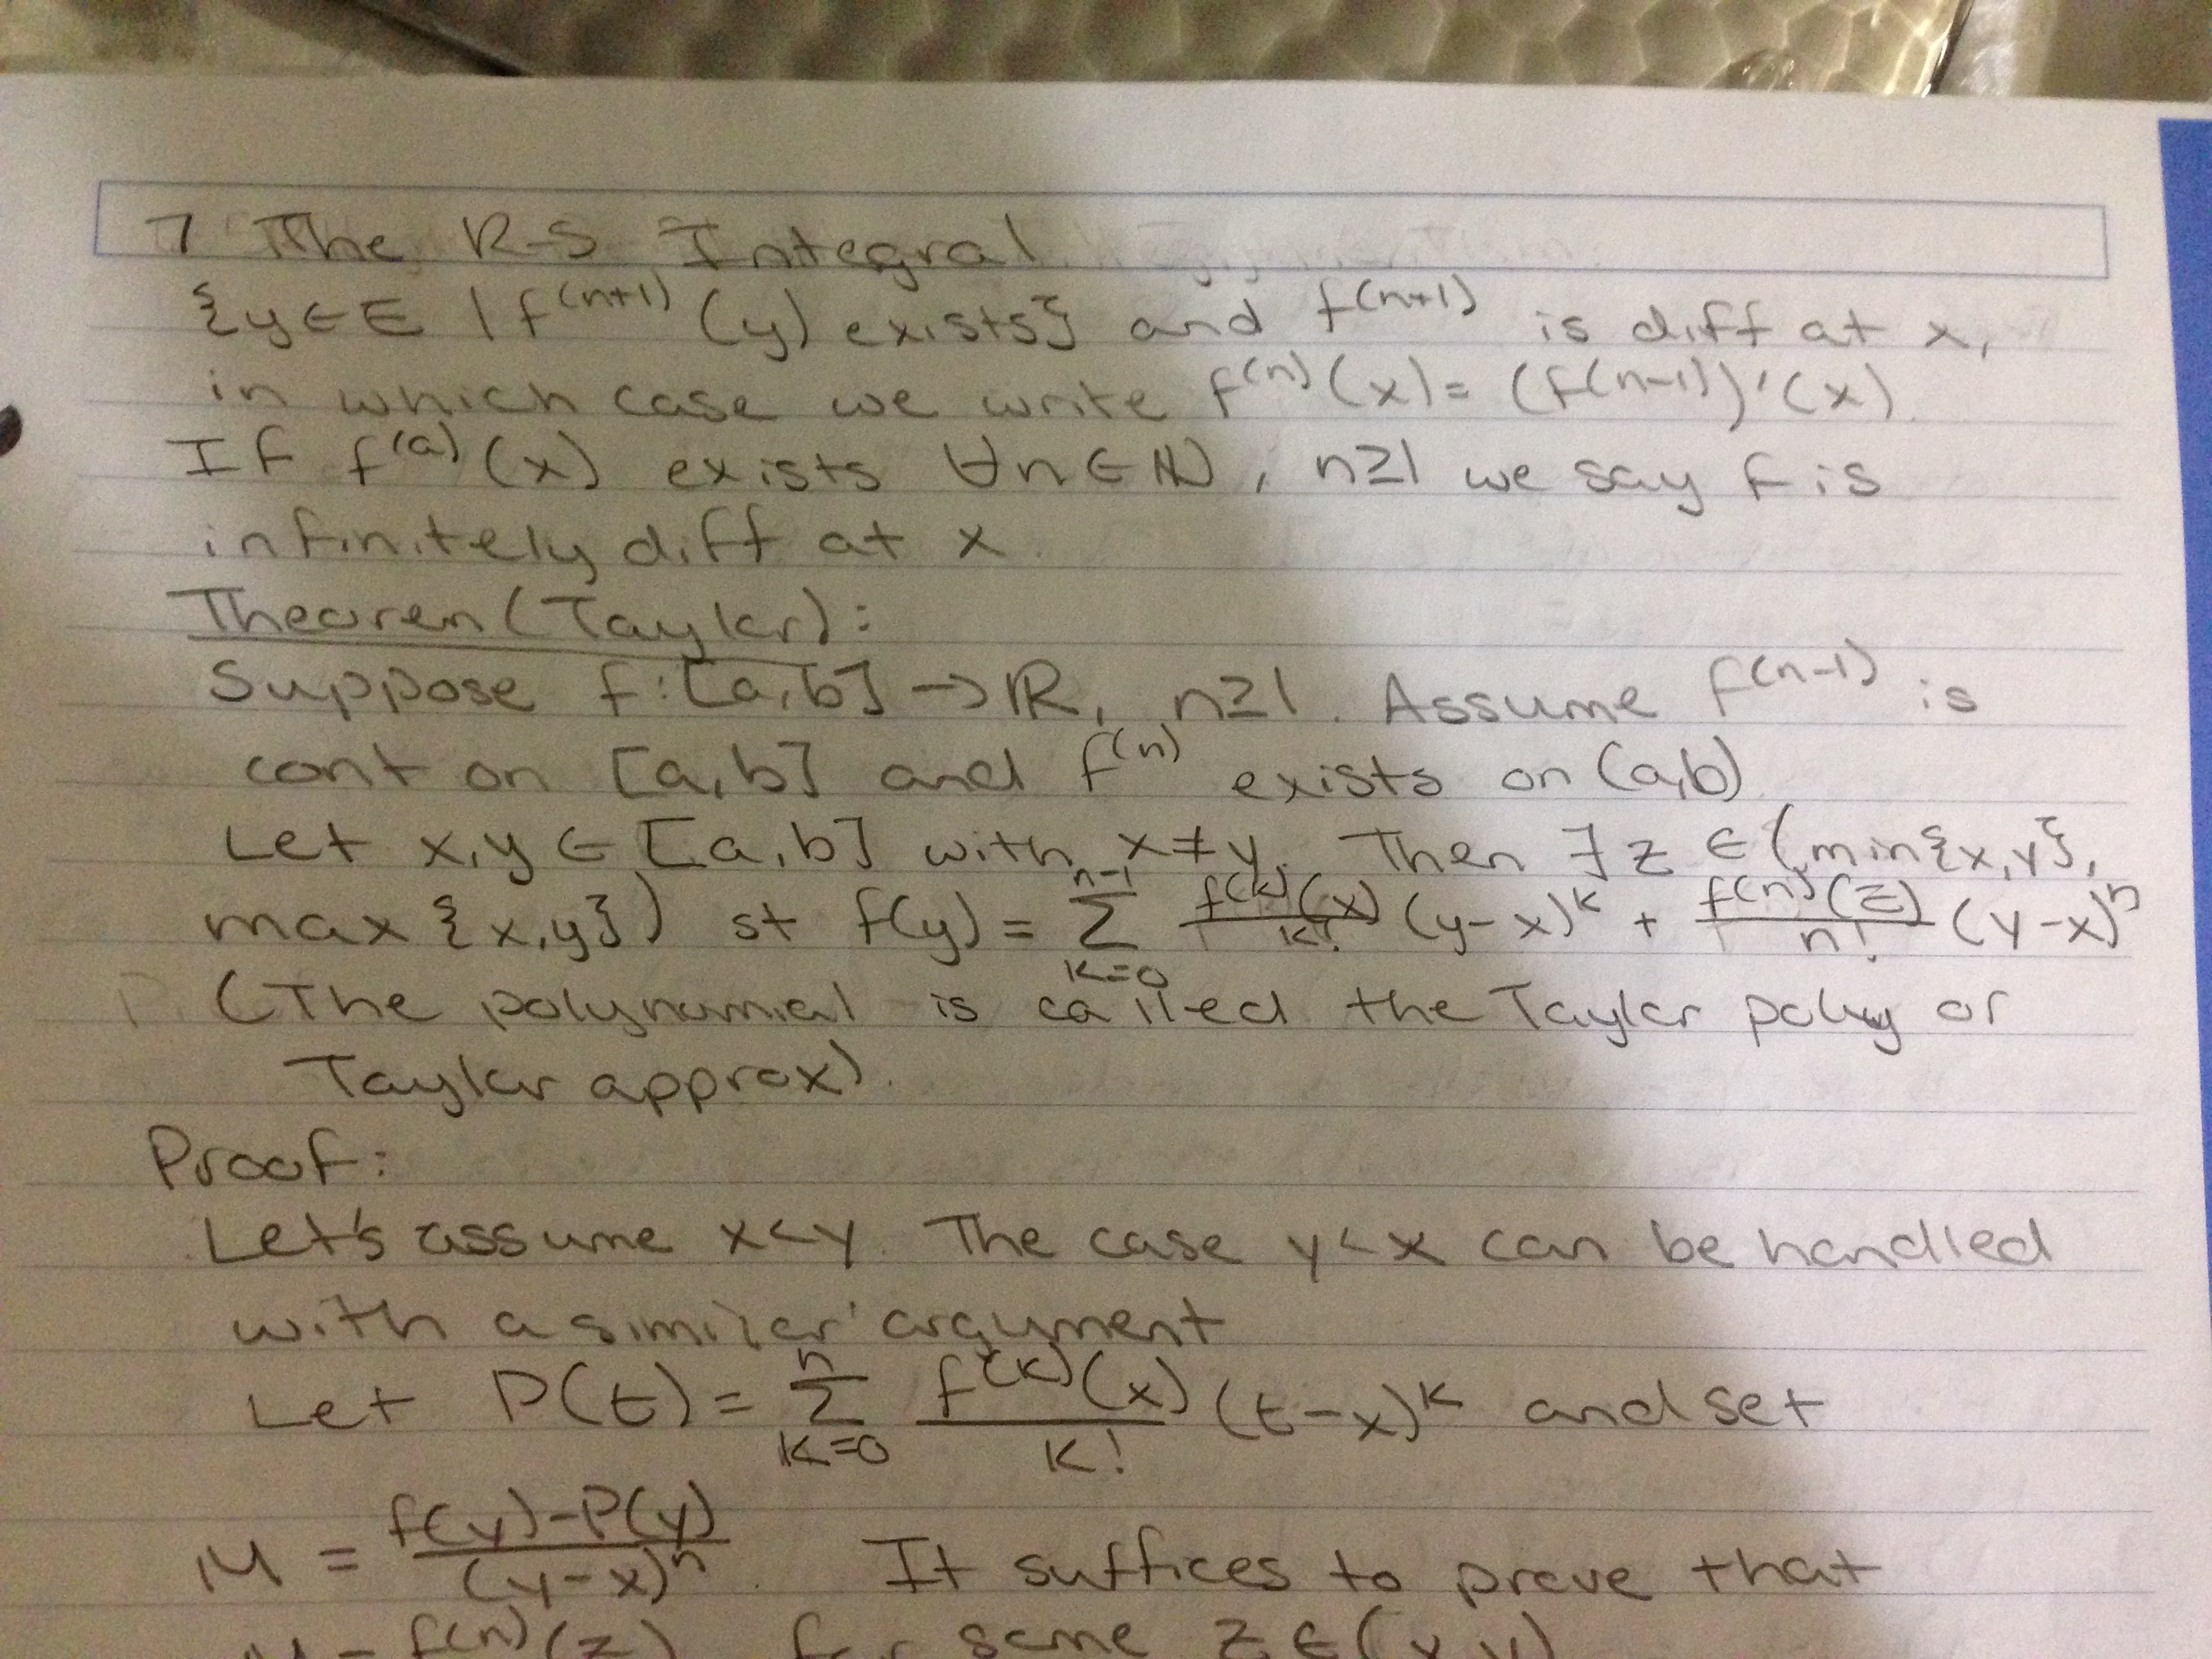 7 The R-S Integral
{y∈E | f^(n+1) (y) exists} and f^(n+1) is diff at x,
in which case we write f^(n)(x) = (f^(n-1))'(x)
If f^(a)(x) exists ∀n∈ℕ, n≥1 we say f is
infinitely diff at x.
Theorem (Taylor):
Suppose f:[a,b] → ℝ, n≥1. Assume f^(n-1) is
cont on [a,b] and f^(n) exists on (a,b)
Let x,y ∈ [a,b] with x≠y. Then ∃z ∈ (min{x,y},
max{x,y}) st f(y) = Σ_{k=0}^{n-1} f^(k)(x)/k! (y-x)^k + f^(n)(z)/n! (y-x)^n
(The polynomial is called the Taylor poly or
Taylor approx).
Proof:
Let's assume x<y. The case y<x can be handled
with a similar argument
Let P(t) = Σ_{k=0}^{n} f^(k)(x)/k! (t-x)^k and set
M = f(y)-P(y)/(y-x)^n. It suffices to prove that
M = f^(n)(z) for some z∈(x,y)